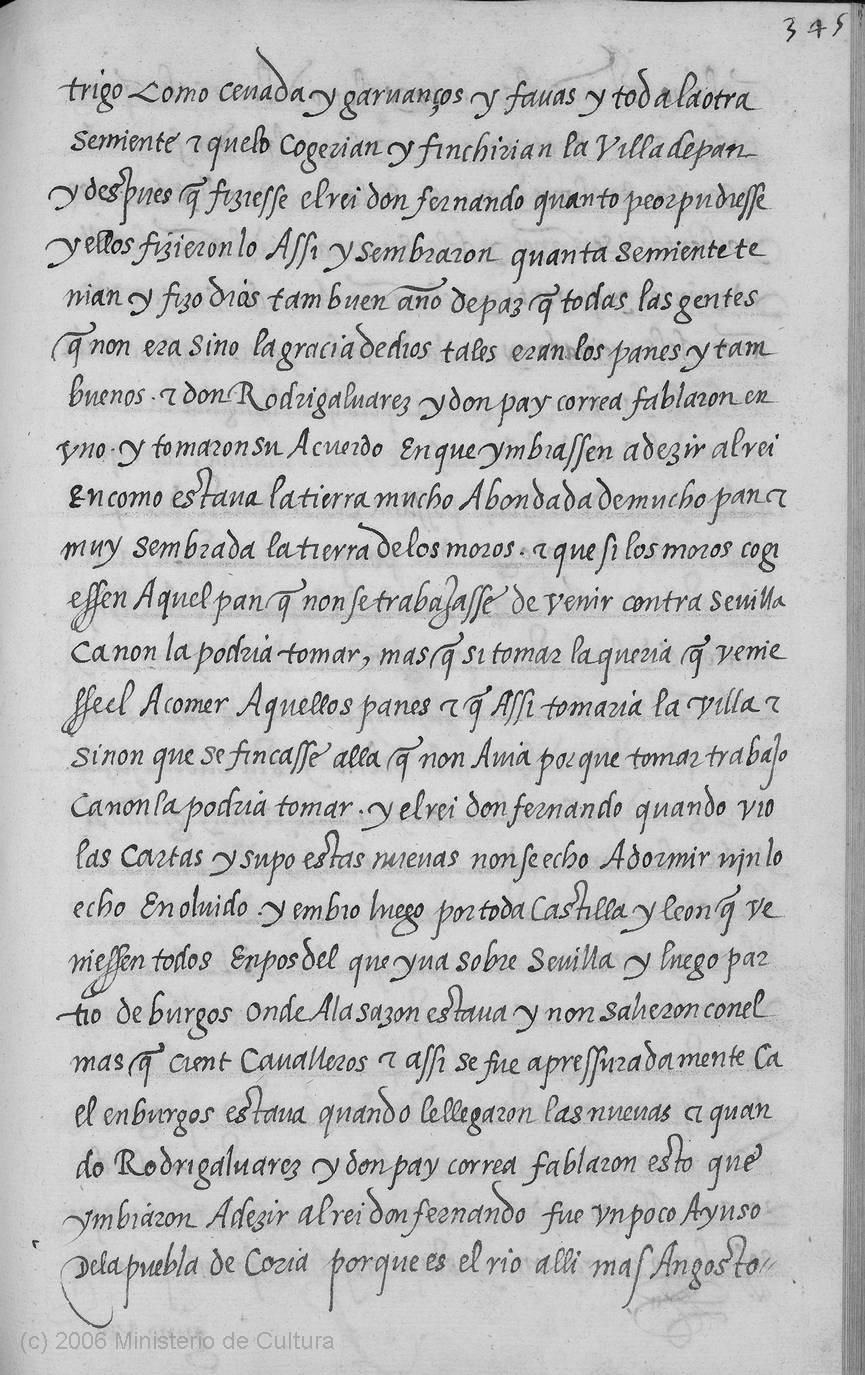 345
trigo Como cevada y garvanços y favas y toda la otra
semiente τ que lo Cogerian y finchirian la Villa de pan
y despues q̃ fiziesse el rei don fernando quanto peor pudiesse
y ellos fizieronlo Assi y sembraron quanta semiente te
nian y fizo dios tam buen año de paz q̃ todas las gentes
q̃ non era sino la gracia de dios tales eran los panes y tam
buenos . τ don Rodrigaluarez y don pay correa fablaron en
vno . y tomaron su Acuerdo En que ymbiassen a dezir al rei
En como estava la tierra mucho Abondada de mucho pan τ
muy sembrada la tierra de los moros . τ que si los moros cogi
essen Aquel pan q̃ non se trabajasse de venir contra Sevilla
Ca non la podria tomar, mas q̃ si tomar la queria q̃ venie
sse el A comer Aquellos panes τ q̃ Assi tomaria la villa τ
Sinon que se fincasse alla q̃ non Avia por que tomar trabajo
Ca non la podria tomar . y el rei don fernando quando vio
las Cartas y supo estas nuevas non se echo A dormir nin lo
echo En olvido . y embio luego por toda Castilla y leon q̃ ve
niessen todos En pos del que yva sobre Sevilla y luego par
tio de burgos onde A la sazon estava y non salieron con el
mas q̃ cient Cavalleros τ assi se fue apressuradamente Ca
el en burgos estava quando le llegaron las nuevas τ quan
do Rodrigaluarez y don pay correa fablaron esto que
ymbiaron A dezir al rei don fernando fue vn poco Ayuso
De la puebla de Coria por que es el rio alli mas Angosto
(c) 2006 Ministerio de Cultura